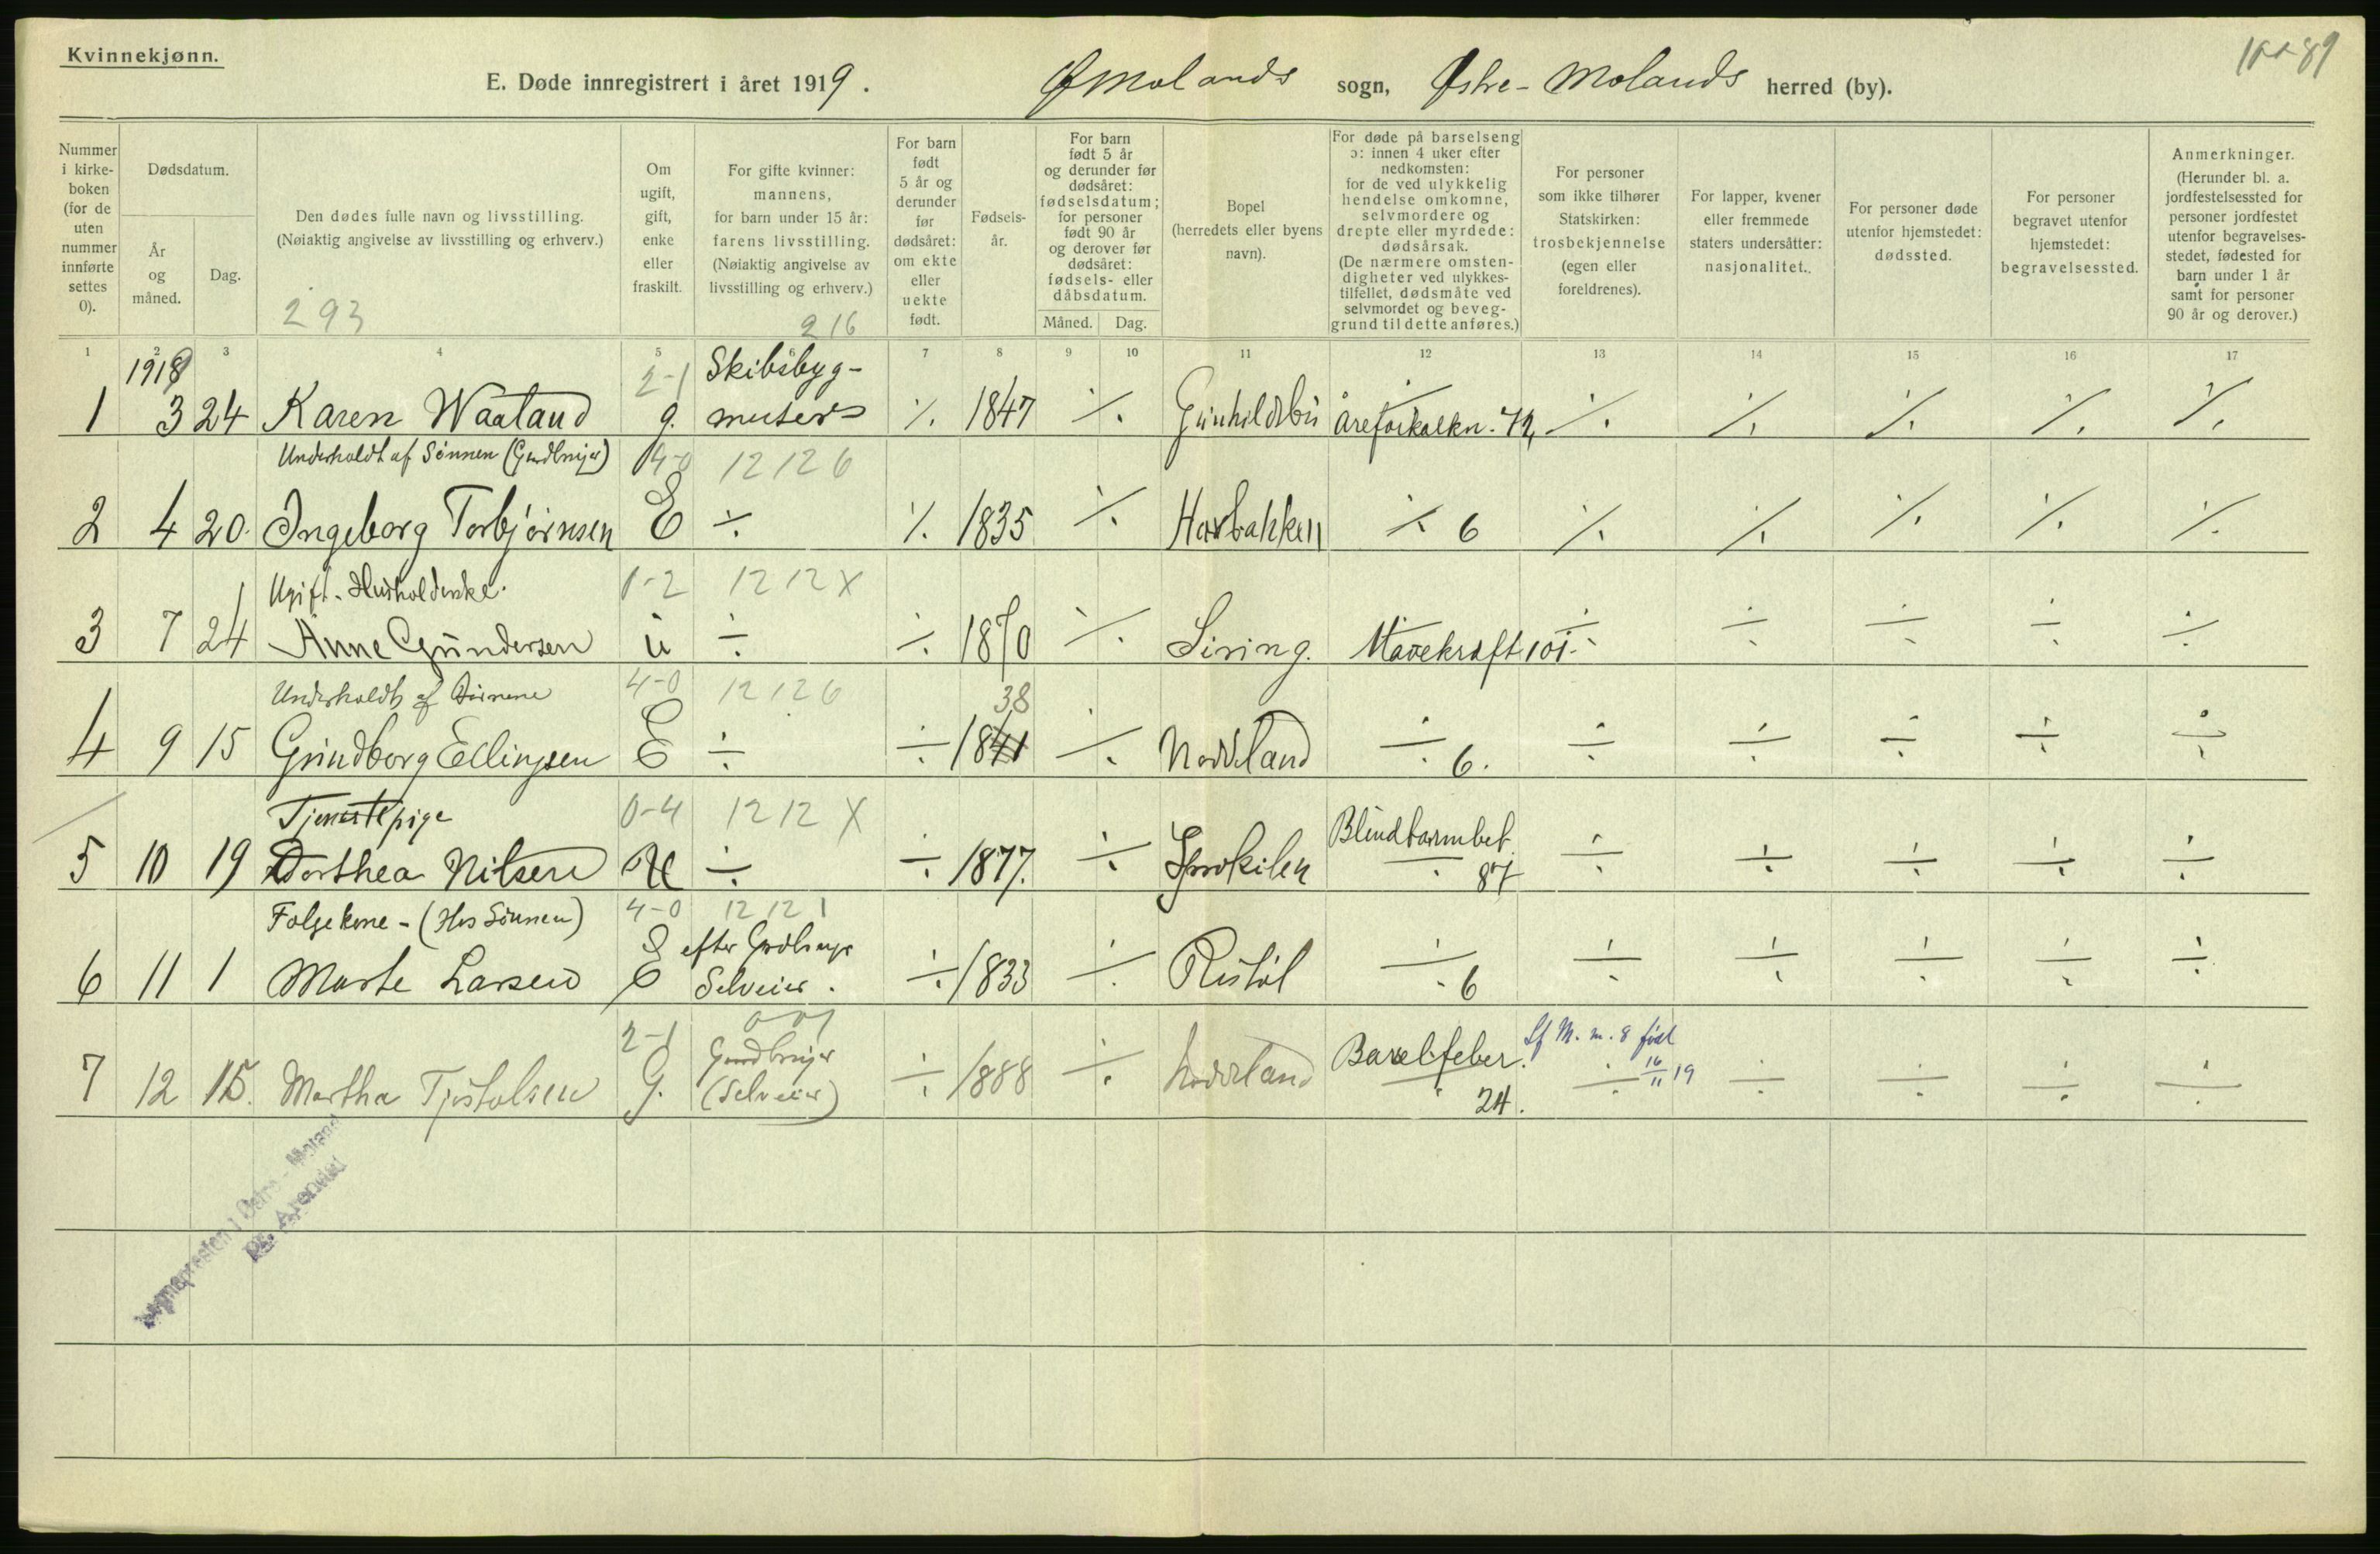 Kvinnekjønn.
E. Døde innregistrert i året 1919. ØMolands sogn, Østre-Molands herred (by).
Nummer i kirke-boken (for de uten nummer innførte settes 0).
Dødsdatum.
År og måned.
Dag.
Den dødes fulle navn og livsstilling.
(Nøiaktig angivelse av livsstilling og erhverv.)
293
Om ugift, gift, enke eller fraskilt.
For gifte kvinner: mannens, for barn under 15 år: farens livsstilling.
(Nøiaktig angivelse av livsstilling og erhverv.)
216
For barn født 5 år og derunder før dødsåret: om ekte eller uekte født.
Fødsels-år.
For barn født 5 år og derunder før dødsåret: fødselsdatum; for personer født 90 år og derover før dødsåret: fødsels- eller dåbsdatum.
Måned. Dag.
Bopel
(herredets eller byens navn).
For døde på barselseng ɔ: innen 4 uker efter nedkomsten: for de ved ulykkelig hendelse omkomne, selvmordere og drepte eller myrdede: dødsårsak.
(De nærmere omsten-digheter ved ulykkes-tilfellet, dødsmåte ved selvmordet og beveg-grund til dette anføres.)
For personer som ikke tilhører Statskirken: trosbekjennelse (egen eller foreldrenes).
For lapper, kvener eller fremmede staters undersåtter: nasjonalitet.
For personer døde utenfor hjemstedet: dødssted.
For personer begravet utenfor hjemstedet: begravelsessted.
Anmerkninger.
(Herunder bl. a. jordfestelsessted for personer jordfestet utenfor begravelses-stedet, fødested for barn under 1 år samt for personer 90 år og derover.)
1 2 3 4 5 6 7 8 9 10 11 12 13 14 15 16 17
1919 2-1 Skibsbyg-
1 3 24 Karen Waaland g. mesters ⁒ 1847 ⁒ Gunhildsbu Åreforkalkn. ⁒ ⁒ ⁒ ⁒ ⁒
Underholdt af Sønnen 4-0 12 12 6
2 4 20. Ingeborg Torbjørnsen E ÷ ⁒ 1835 ⁒ Havbakken ⁒ 6 ⁒ ⁒ ⁒ ⁒ ⁒
Ugift. Husholderske. 1-2 12 12 X
3 7 24 Anne Gundersen u ÷ ÷ 1870 ⁒ Liring. Mavekræft 101 ÷ ÷ ÷ ÷ ÷
Underholdt af 4-0 12 12 6 38
4 9 15 Gundborg Ellingsen E ÷ ÷ 1841 ⁒ Nordland ÷ 6. ÷ ÷ ÷ ÷ ÷
Tjenestepige 0-4 12 12 X Blindtarmbet.
5 10 19 Dorthea Nilsen U ÷ ÷ 1877. ÷ ÷ 87 ÷ ÷ ÷ ÷ ÷
Folgekone - (Hos Sønnen) 4-0 12 12 1
6 11 1 Marte Larsen E efter Gårdbruger Selveier. ÷ 1833 ÷ Ristøl ÷ 6 ÷ ÷ ÷ ÷ ÷
2-1 Gaardbruger Barselfeber. Lf M. m. 8 født 16/11 19
7 12 15. Martha Tjøstolsen G. (Selveier) ÷ 1888 ÷ Nordland ÷ 24. ÷ ÷ ÷ ÷ ÷
Sognepresten i Østre-Moland
pr. Arendal